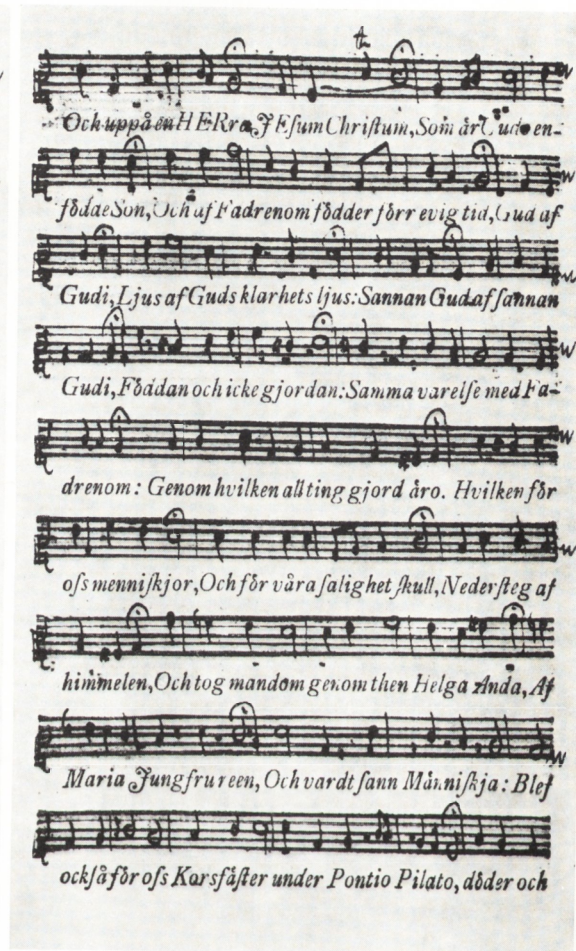 Och uppå en HERra JEsum Christum, Som är Guds en-
födde Son, Och af Fadrenom födder förr evig tid, Gud af
Gudi, Ljus af Guds klarhets ljus: Sannan Gud af sannan
Gudi, Föddan och icke gjordan: Samma varelse med Fa-
drenom: Genom hvilken all ting gjord äro. Hvilken för
oss menniskjor, Och för våra salighet skull, Nedersteg af
himmelen, Och tog mandom genom then Helga Anda, Af
Maria Jungfru reen, Och vardt sann Månniskja: Blef
också för oss Korsfäster under Pontio Pilato, döder och